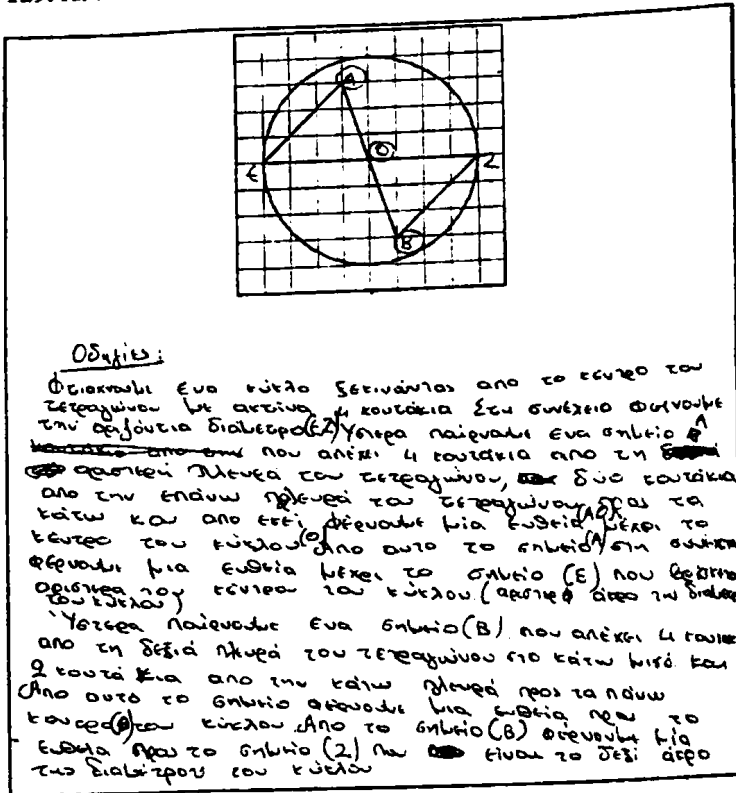 A
O
E
Z
B
Οδηγίες:
Φτιάχνουμε ένα κύκλο ξεκινώντας από το κέντρο του
τετραγώνου με ακτίνα 4 κουτάκια Στη συνέχεια φέρνουμε
την οριζόντια διάμετρο (ΕΖ) Ύστερα παίρνουμε ένα σημείο Α
που απέχει 4 κουτάκια από τη
αριστερή πλευρά του τετραγώνου, δύο κουτάκια
από την επάνω πλευρά του τετραγώνου προς τα
κάτω και από εκεί φέρνουμε μια ευθεία (ΑΟ) μέχρι το
κέντρο του κύκλου (Ο) Από αυτό το σημείο (Α) στη συνέχεια
φέρνουμε μια ευθεία μέχρι το σημείο (Ε) που βρίσκεται
αριστερά του κέντρου του κύκλου (αριστερό άκρο της διαμέτρου
του κύκλου)
Ύστερα παίρνουμε ένα σημείο (Β) που απέχει 4 κουτάκια
από τη δεξιά πλευρά του τετραγώνου στο κάτω μισό και
2 κουτάκια από την κάτω πλευρά προς τα πάνω
Από αυτό το σημείο φέρνουμε μια ευθεία προς το
κέντρο (Ο) του κύκλου. Από το σημείο (Β) φέρνουμε μία
ευθεία προς το σημείο (Ζ) που είναι το δεξί άκρο
της διαμέτρου του κύκλου